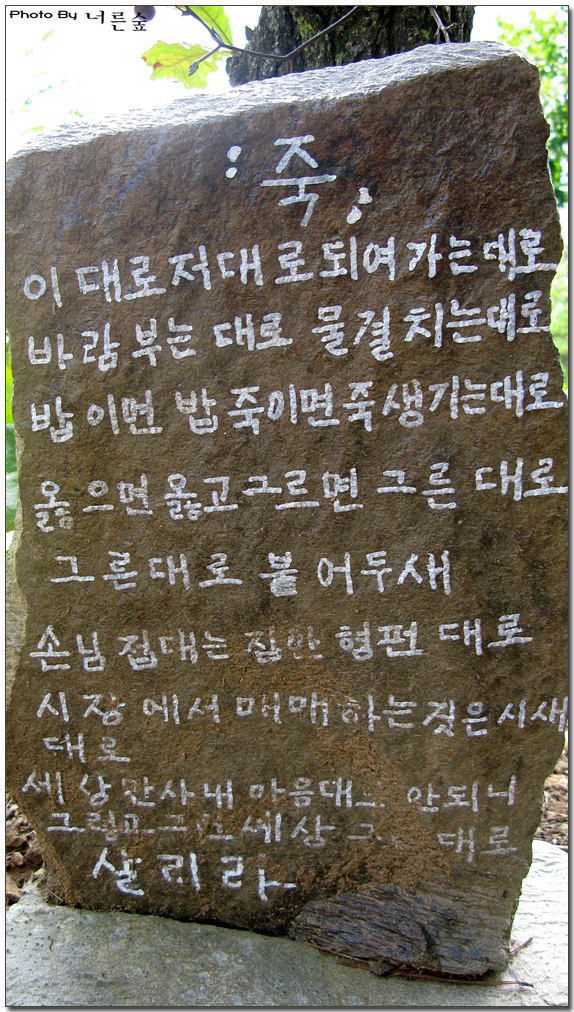 Photo By 너른숲
:죽;
이대로저대로되여가는대로
바람부는대로 물결치는대로
밥이면 밥죽이면죽생기는대로
옳으면옳고그르면 그른 대로
그른대로 붙어두새
손님접대는 집안 형편 대로
시장에서매매하는것은시새
대로
세상만사내 마음대로 안되니
그렇고그런세상 대로
살리라